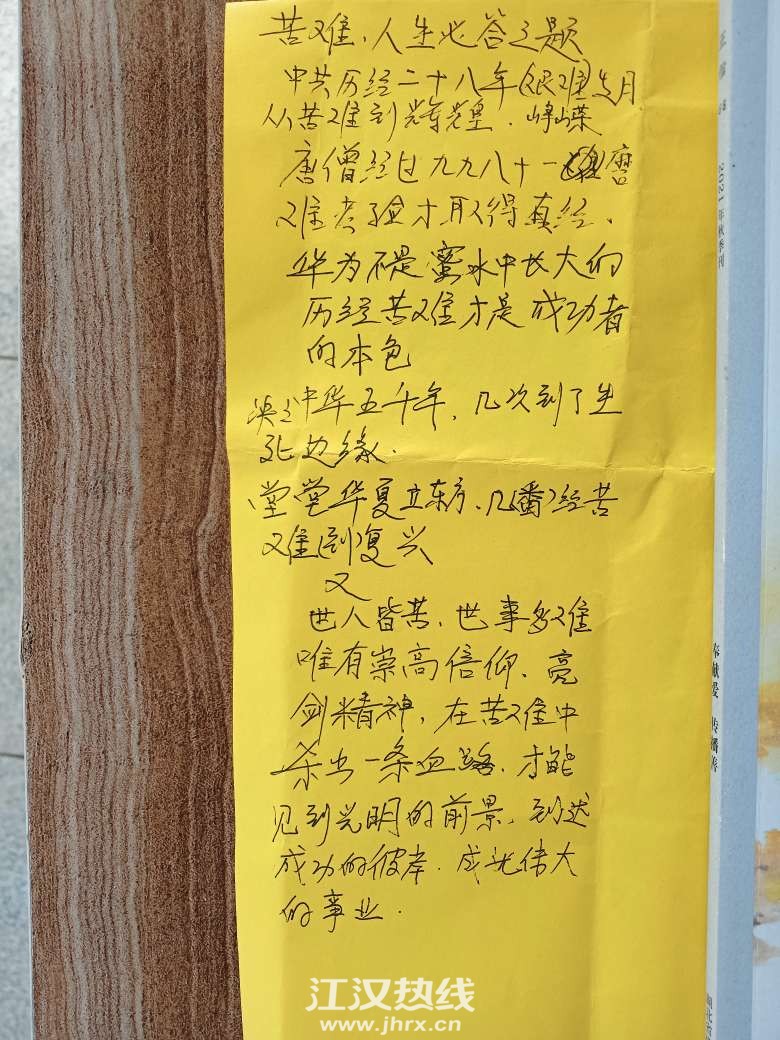 苦难,人生必答之题
中共历经二十八年(艰难)岁月
从苦难到辉煌.峥嵘
唐僧经过九九八十一(难)磨
难考验才取得真经.
华为不是蜜水中长大的
历经苦难才是成功者
的本色
泱泱中华五千年,几次到了生
死边缘.
堂堂华夏立东方.几(番)经苦
难(到)复兴
又
世人皆苦.世事多难
唯有崇高信仰.亮
剑精神,在苦难中
杀出一条血路.才能
见到光明的前景.到达
成功的彼岸.成就伟大
的事业.
2021年秋季刊
奉献爱 传播善
江汉热线
www.jhrx.cn